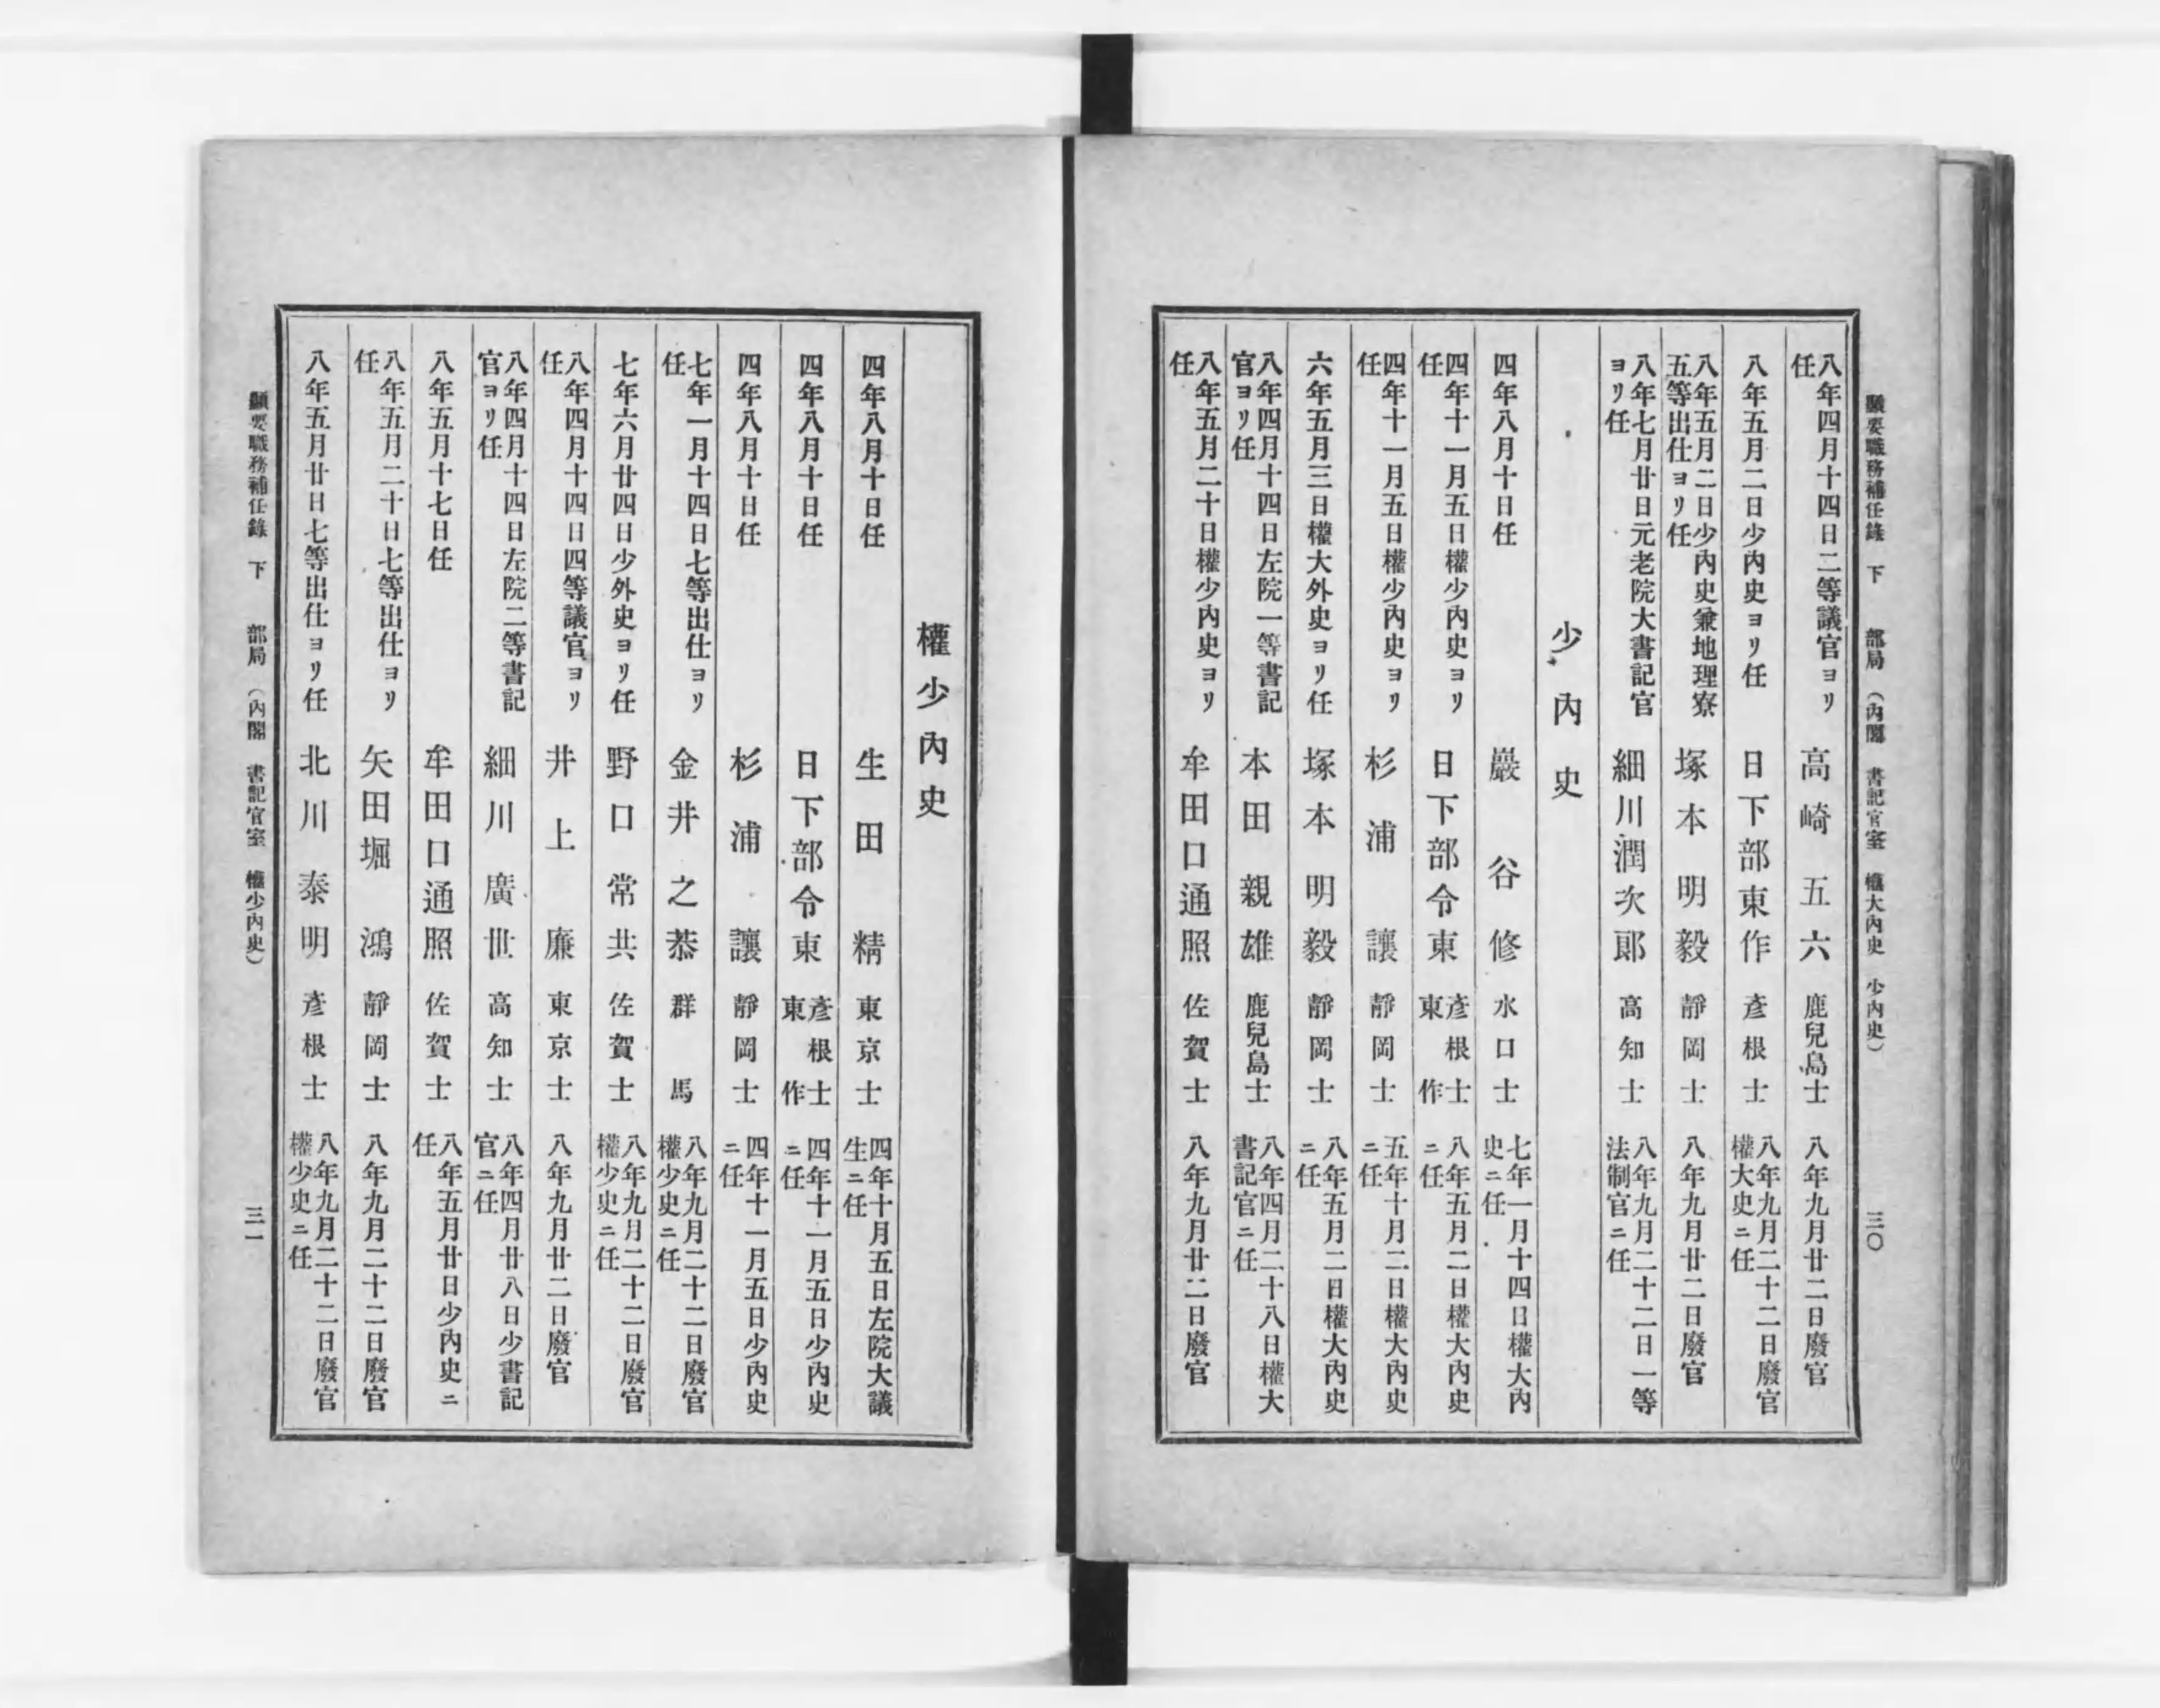 顯要職務補任錄　下　　部局　（內閣　書記官室　權大內史　少內史）　三〇
八年四月十四日二等議官ヨリ任　高崎五六　鹿兒島士　八年九月廿二日廢官
八年五月二日少內史ヨリ任　日下部東作　彥根士　八年九月二十二日廢官權大史ニ任
八年五月二日少內史兼地理寮五等出仕ヨリ任　塚本明毅　靜岡士　八年九月廿二日廢官
八年七月廿日元老院大書記官ヨリ任　細川潤次郞　高知士　八年九月二十二日一等法制官ニ任
少內史
四年八月十日任　巖谷修　水口士　七年一月十四日權大內史ニ任
四年十一月五日權少內史ヨリ任　日下部令東　彥根士東作　八年五月二日權大內史ニ任
四年十一月五日權少內史ヨリ任　杉浦讓　靜岡士　五年十月二日權大內史ニ任
六年五月三日權大外史ヨリ任　塚本明毅　靜岡士　八年五月二日權大內史ニ任
八年四月十四日左院一等書記官ヨリ任　本田親雄　鹿兒島士　八年四月二十八日權大書記官ニ任
八年五月二十日權少內史ヨリ任　牟田口通照　佐賀士　八年九月廿二日廢官
權少內史
四年八月十日任　生田精　東京士　四年十月五日左院大議生ニ任
四年八月十日任　日下部令東　彥根士東作　四年十一月五日少內史ニ任
四年八月十日任　杉浦讓　靜岡士　四年十一月五日少內史ニ任
七年一月十四日七等出仕ヨリ任　金井之恭　群馬　八年九月二十二日廢官權少史ニ任
七年六月廿四日少外史ヨリ任　野口常共　佐賀士　八年九月二十二日廢官權少史ニ任
八年四月十四日四等議官ヨリ任　井上廉　東京士　八年九月廿二日廢官
八年四月十四日左院二等書記官ヨリ任　細川廣世　高知士　八年四月廿八日少書記官ニ任
八年五月十七日任　牟田口通照　佐賀士　八年五月廿日少內史ニ任
八年五月二十日七等出仕ヨリ任　矢田堀鴻　靜岡士　八年九月二十二日廢官
八年五月廿日七等出仕ヨリ任　北川泰明　彥根士　八年九月二十二日廢官權少史ニ任
顯要職務補任錄　下　　部局　（內閣　書記官室　權少內史）　三一